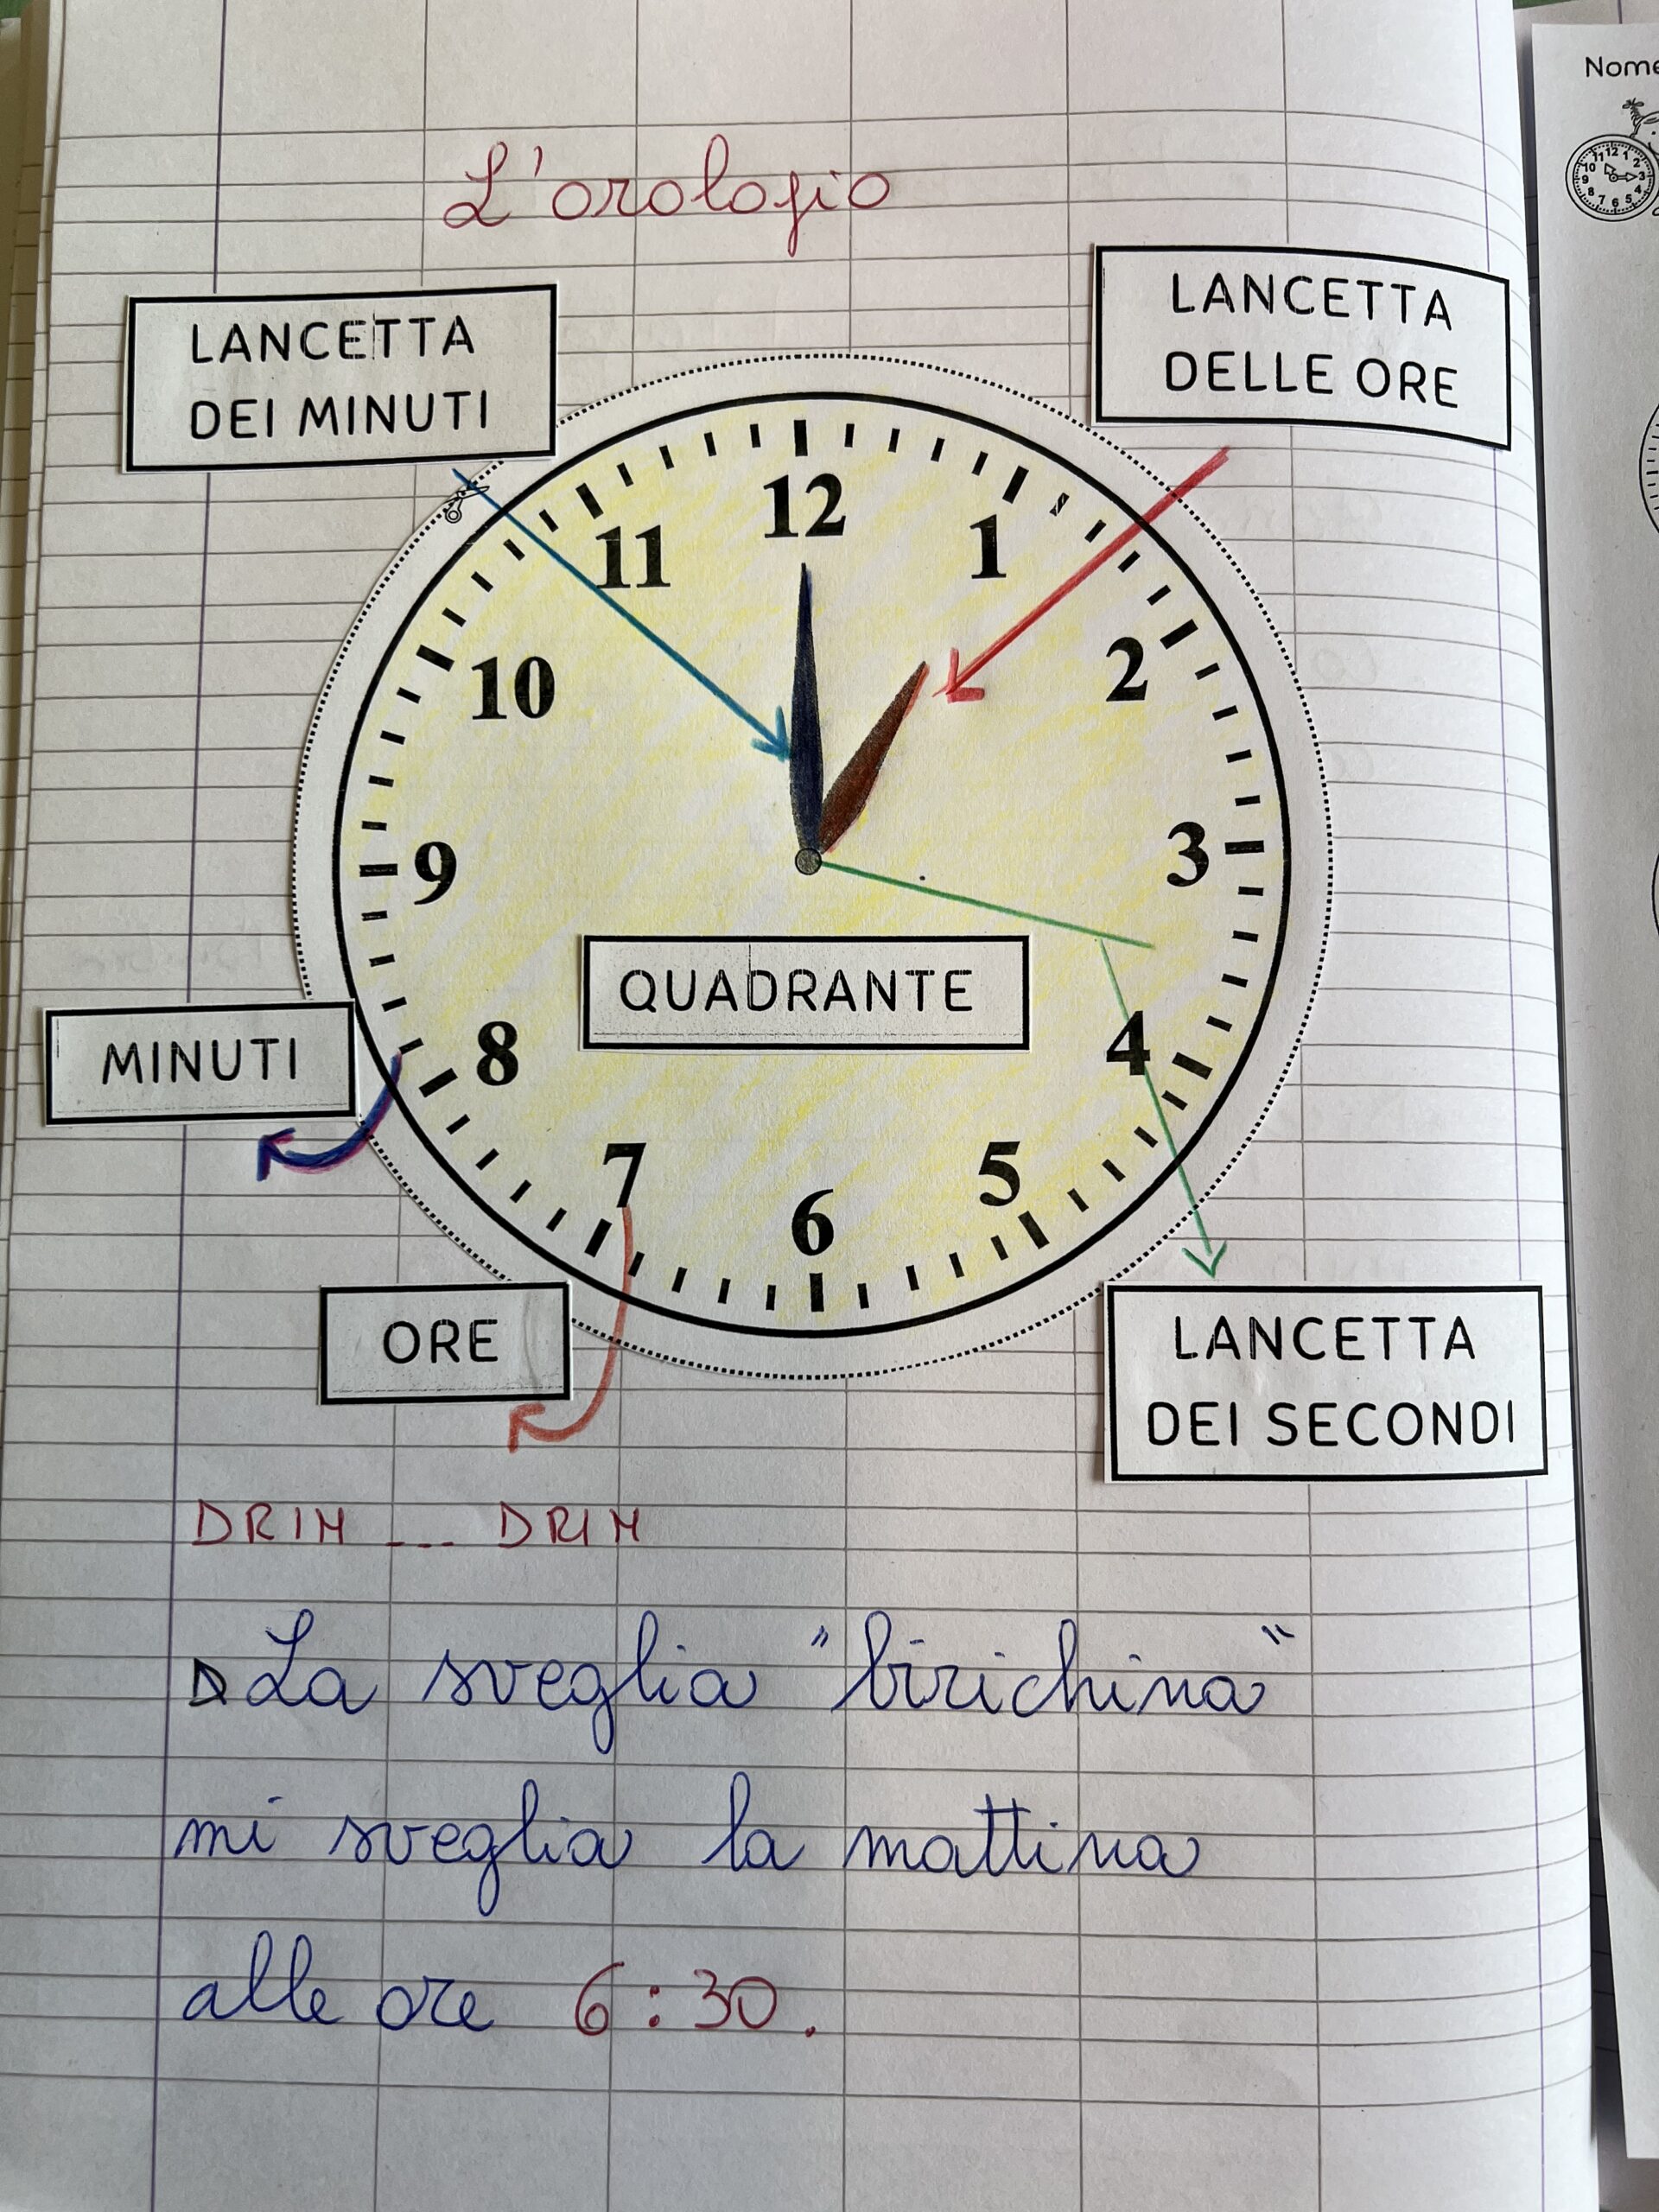 L'orologio
Nome
LANCETTA
DEI MINUTI
LANCETTA
DELLE ORE
12
11
1
10
2
9
3
QUADRANTE
8
4
MINUTI
7
5
6
ORE
LANCETTA
DEI SECONDI
DRIM ... DRIM
La sveglia "birichina"
mi sveglia la mattina
alle ore 6:30.